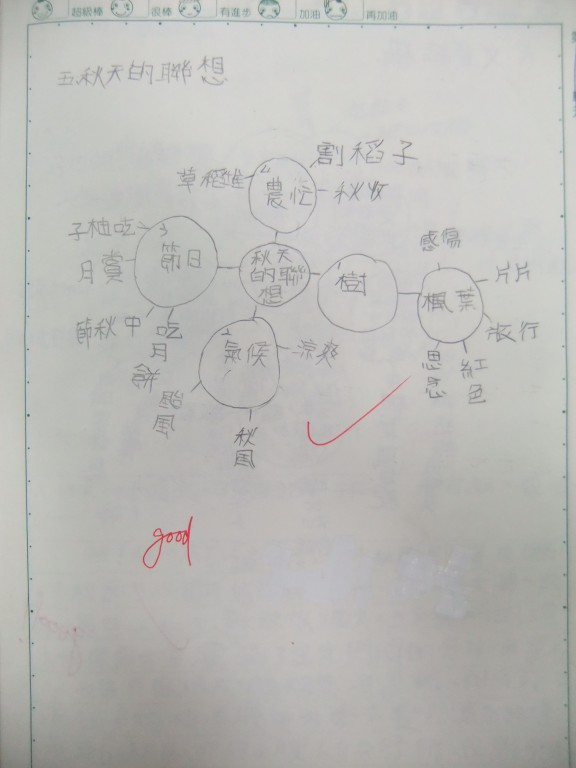 超級棒 很棒 有進步 加油 再加油
五、秋天的聯想
割稻子
草稻堆
2 農忙
秋收
子柚吃
月賞
節秋中
吃月餅
3 節日
秋天的聯想
樹
感傷
片片
旅行
紅色
思念
楓葉
氣候
涼爽
颱風
秋風
good